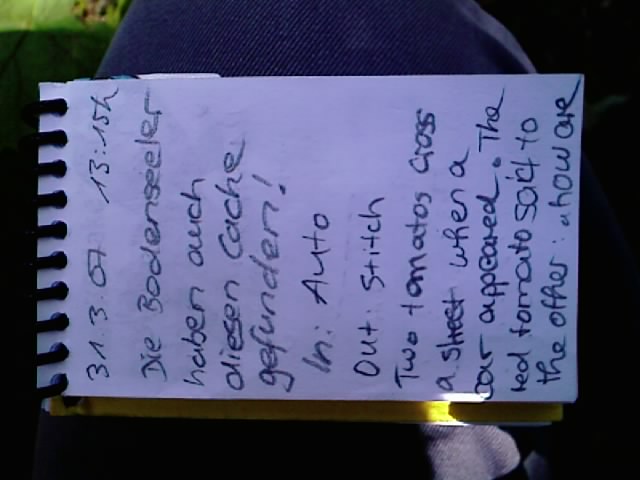 31.3.07 13:15h
Die Bodenseeler
haben auch
diesen Cache
gefunden!
In: Auto
Out: Stitch
Two tomatos cross
a street when a
car appeared. The
red tomato said to
the other: "how are